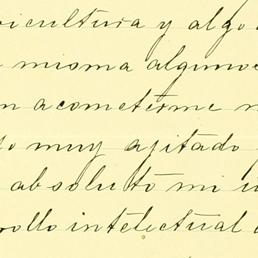 icultura y algo
misma alguno
n acometerme
o muy agitado
absoluto mi
rollo intelectual